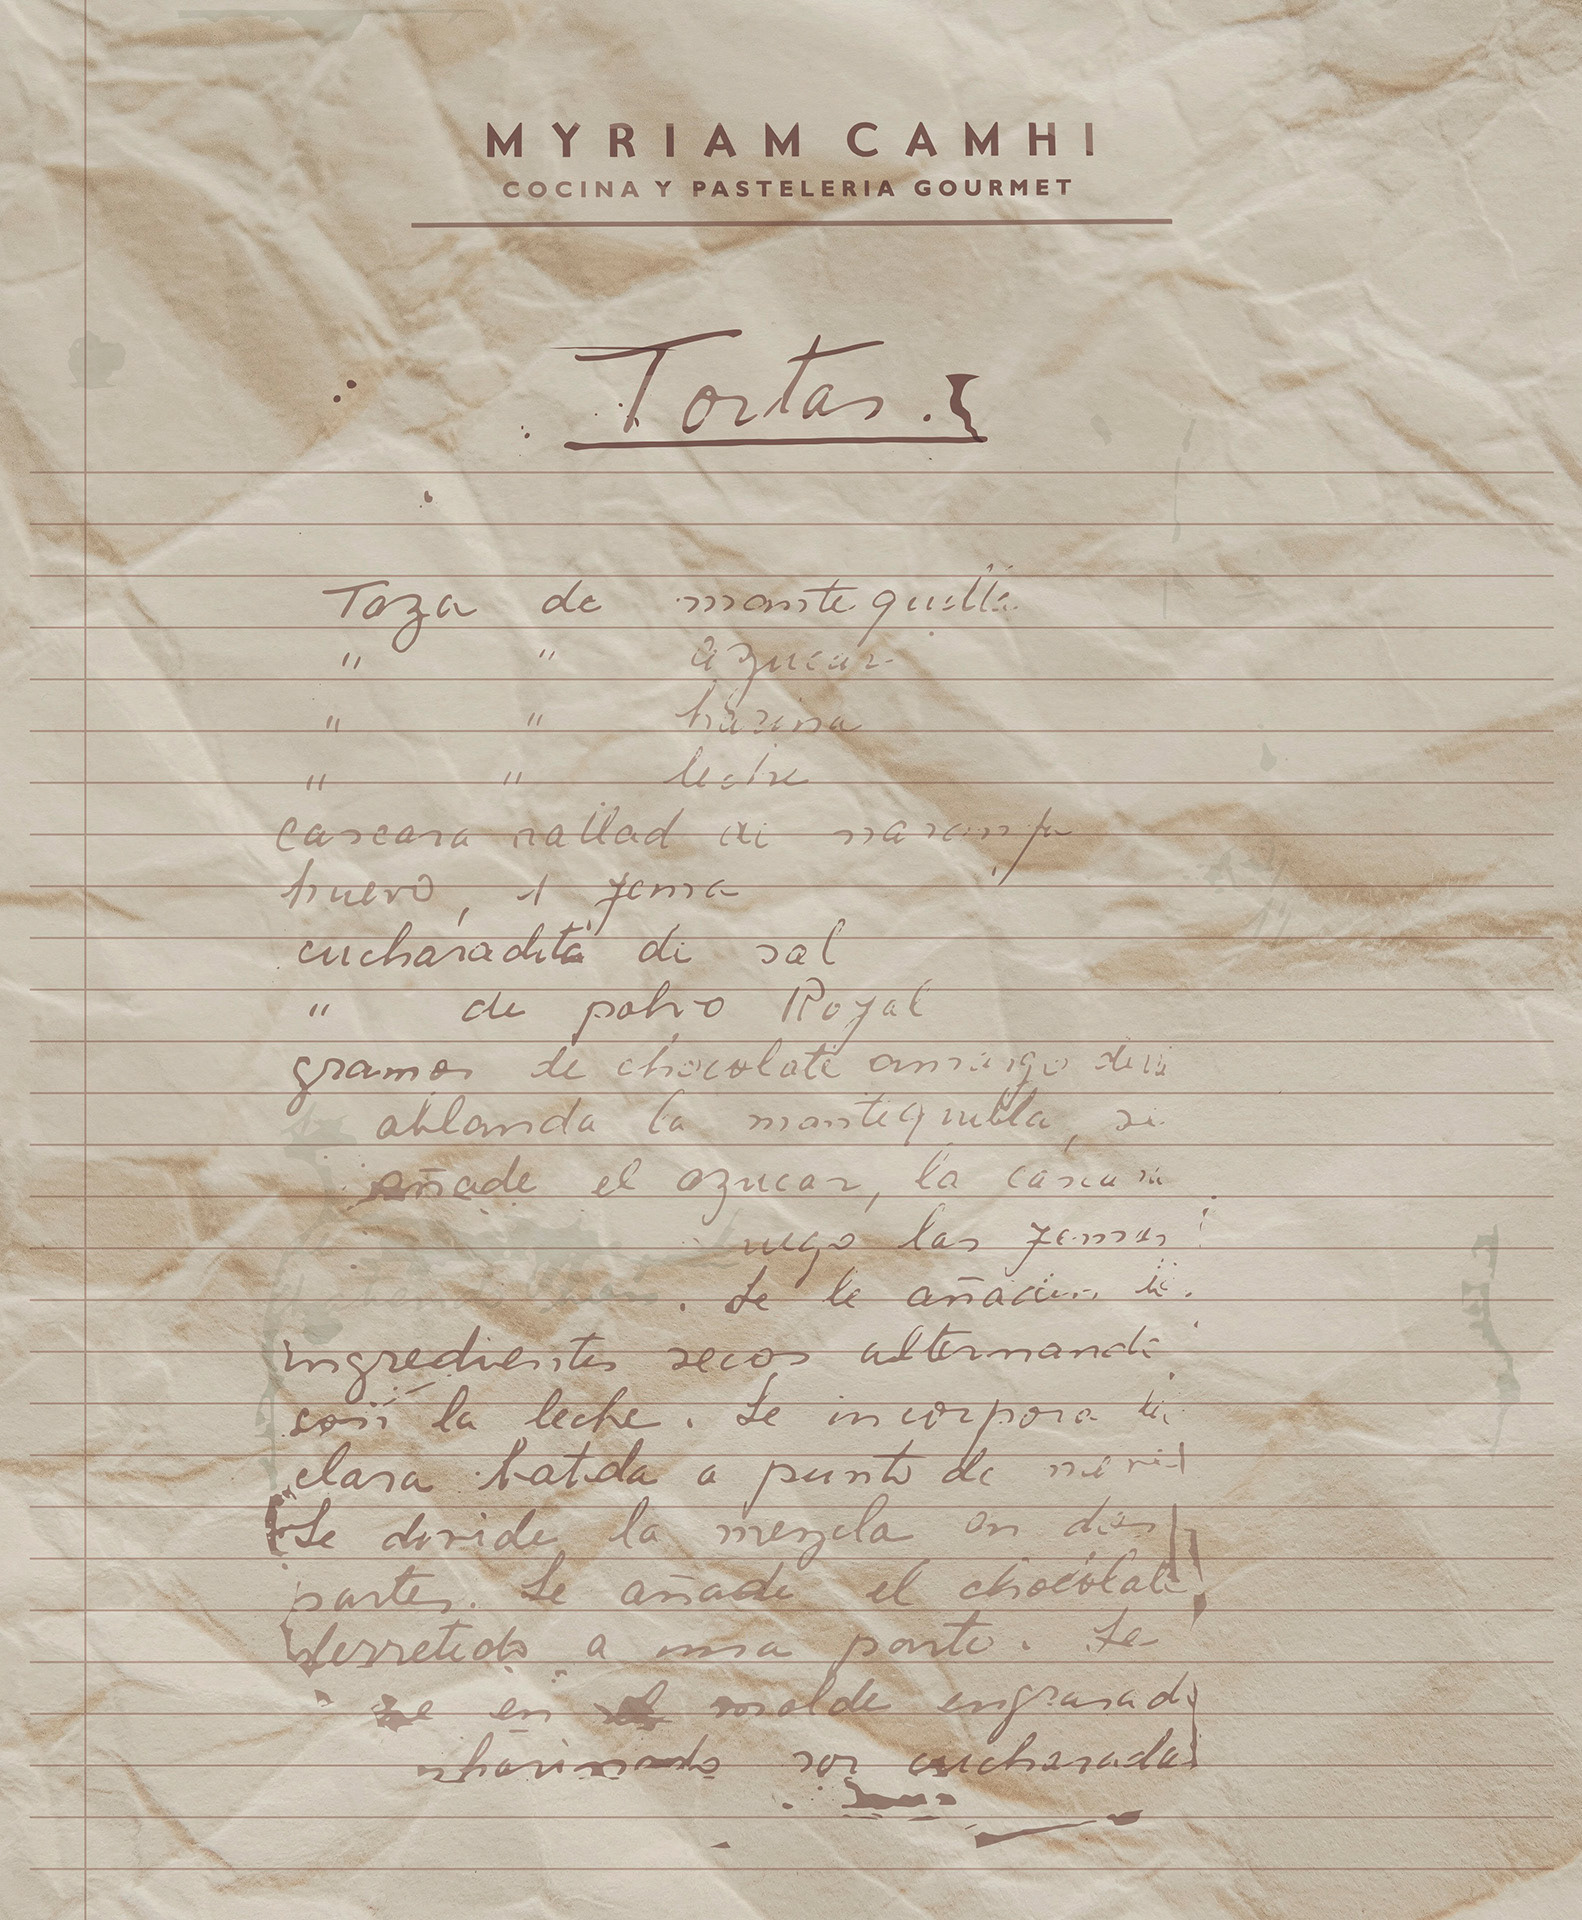 MYRIAM CAMHI
COCINA Y PASTELERIA GOURMET
Tortas.
Taza de mantequilla
" " azucar
" " harina
" " leche
cascara rallad de naranja
huevo, 1 yema
cucharadita de sal
" de polvo Royal
gramos de chocolate amargo
ablanda la mantequilla, se
añade el azucar, la
las yemas
. Se le añaden
ingredientes secos alternand
con la leche. Se incorpora
clara batida a punto de
Se divide la mezcla en dos
partes. Se añade el chocolate
derretido a una parte. Se
en el molde engrasad
cucharadas